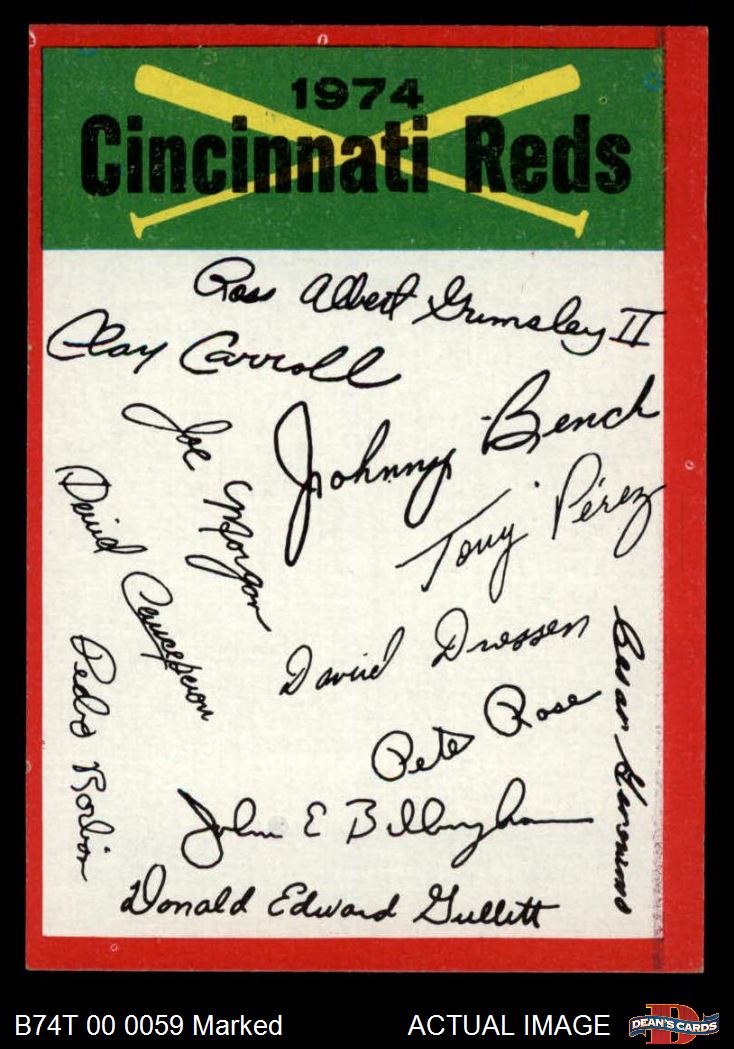 1974
Cincinnati Reds
Ross Albert Grimsley II
Clay Carroll
Joe Morgan
Johnny Bench
David Concepcion
Tony Pérez
David Driessen
Cesar Geronimo
Pedro Borbon
Pete Rose
John E Billingham
Donald Edward Gullett
B74T 00 0059 Marked
ACTUAL IMAGE
D
DEAN'S CARDS